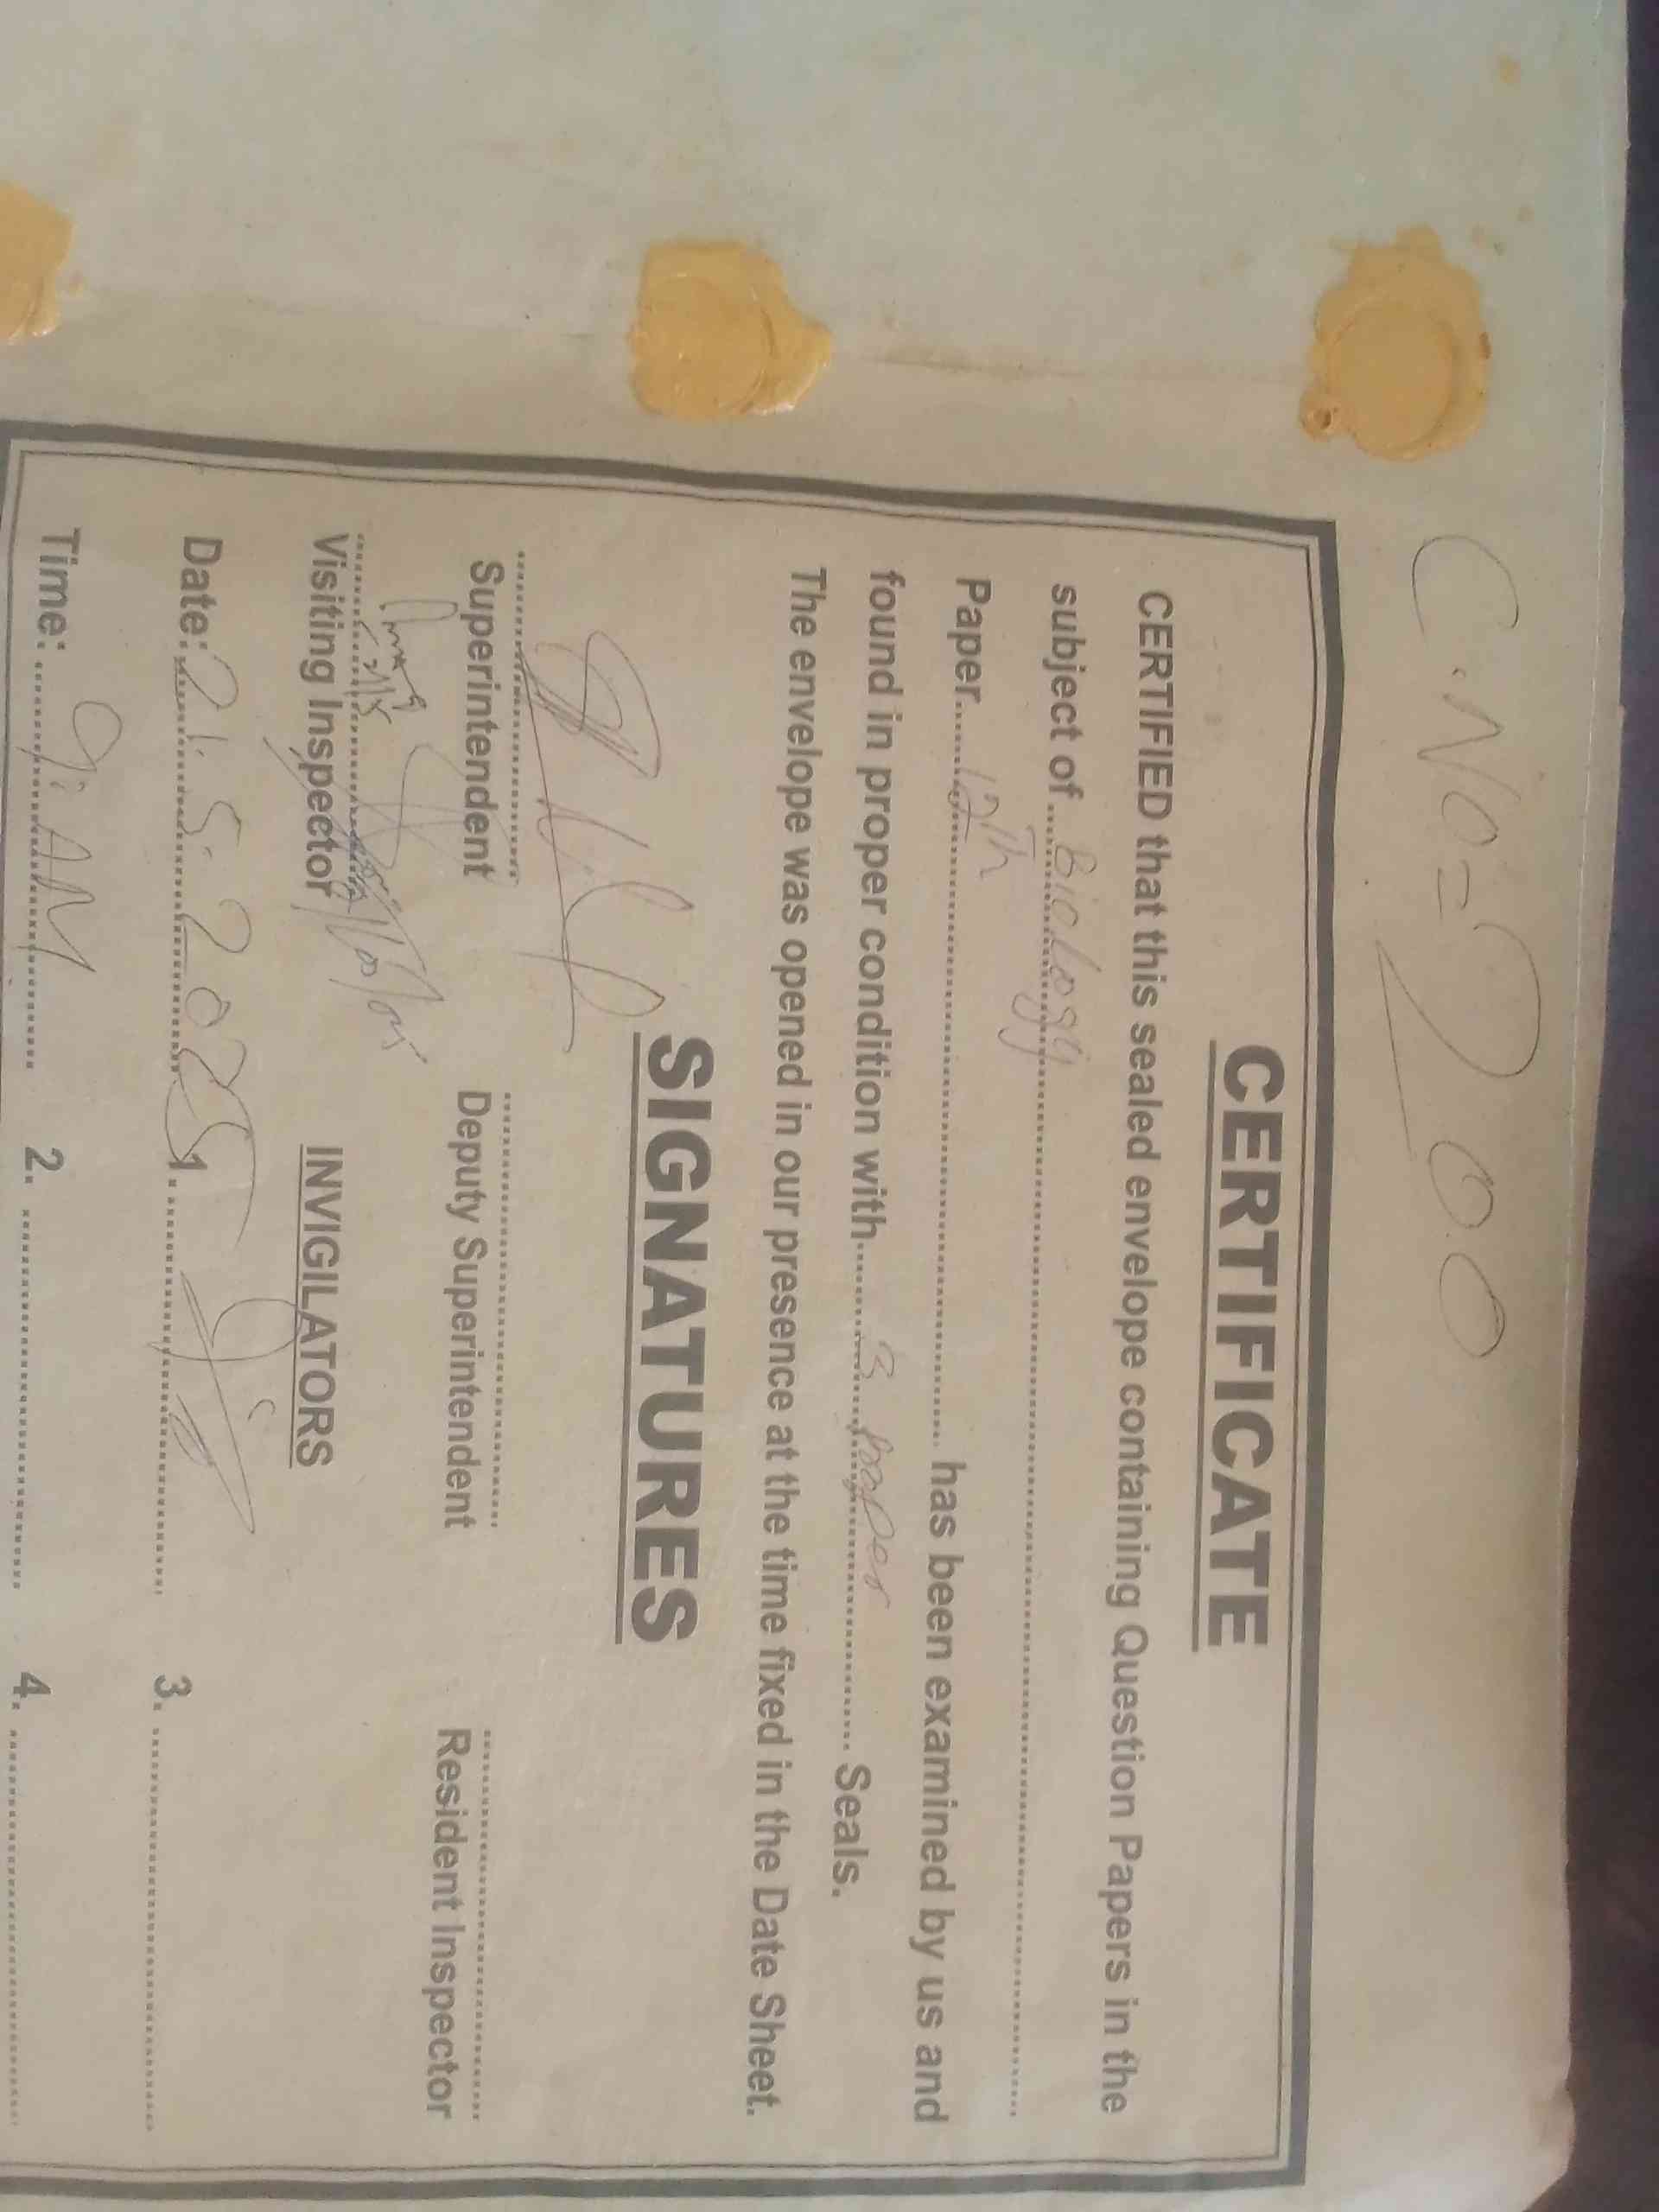 C.No = 200
CERTIFICATE
CERTIFIED that this sealed envelope containing Question Papers in the
subject of ... Biology ...
Paper ... 12th ... has been examined by us and
found in proper condition with ... 3 paper ... Seals.
The envelope was opened in our presence at the time fixed in the Date Sheet.
SIGNATURES
Superintendent Deputy Superintendent Resident Inspector
Visiting Inspector INVIGILATORS
Date: 21.5.2025 1. ... 3. ...
Time: 9: AM 2. ... 4. ...